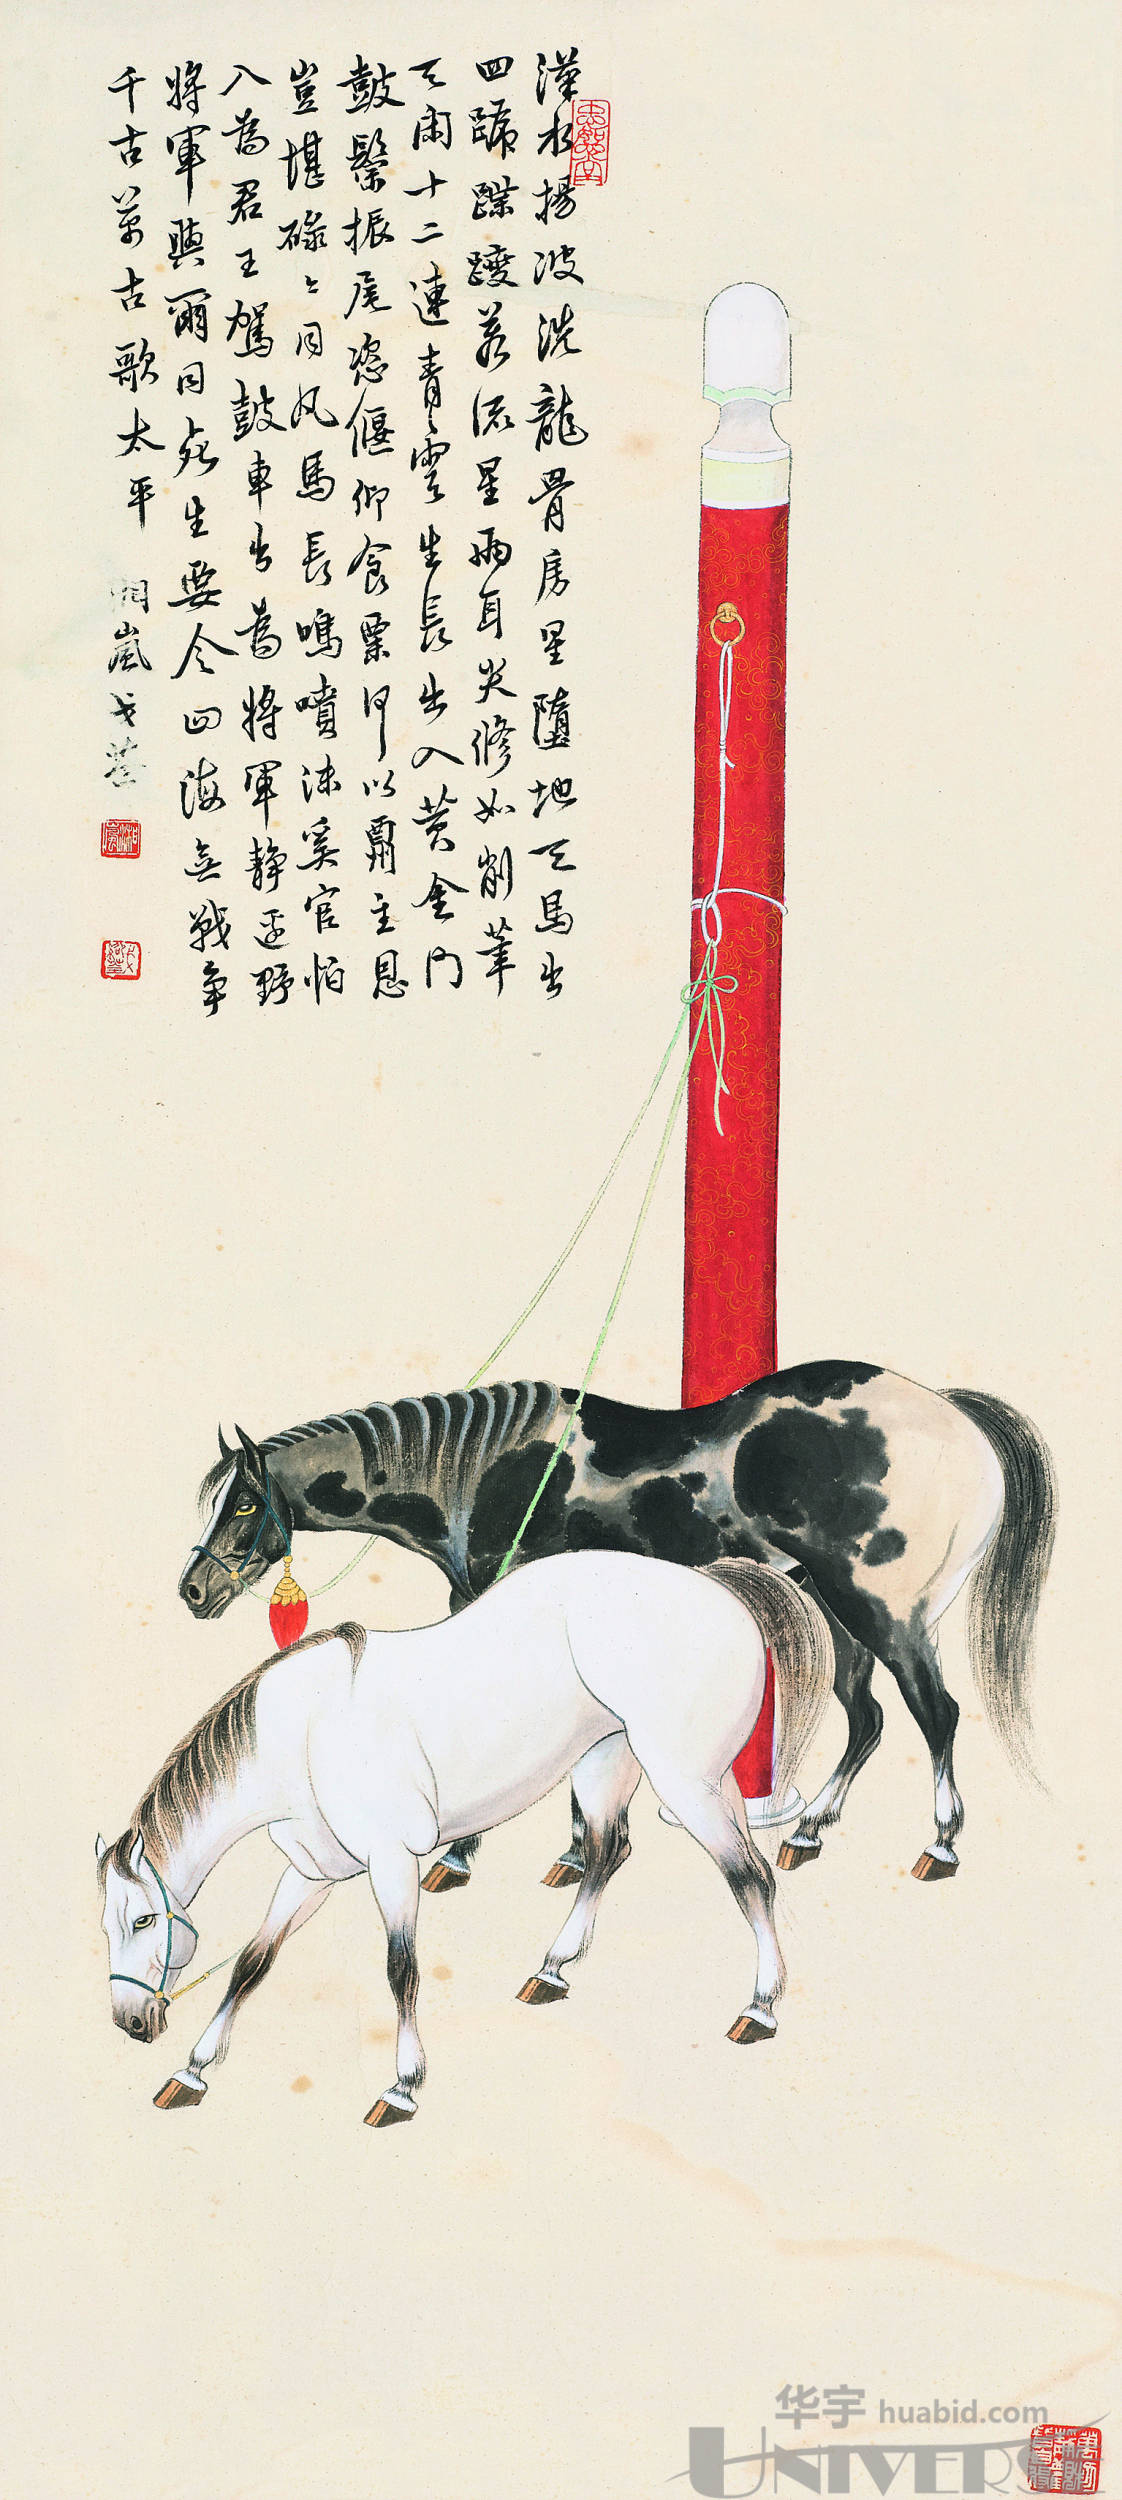 漢水揚波洗龍骨房星墮地天馬出
四蹄蹀躞若流星兩耳尖修如削筆
天閑十二連青雲生長出入黃金門
鼓鬃振尾恣偃仰食粟何以酬主恩
豈堪碌々同凡馬長鳴噴沫奚官怕
入為君王駕鼓車出為將軍靜邊野
將軍與爾同死生要令四海無戰爭
千古萬古歌太平 湘嵐戈荃
湘嵐
华宇 huabid.com
UNIVERSE